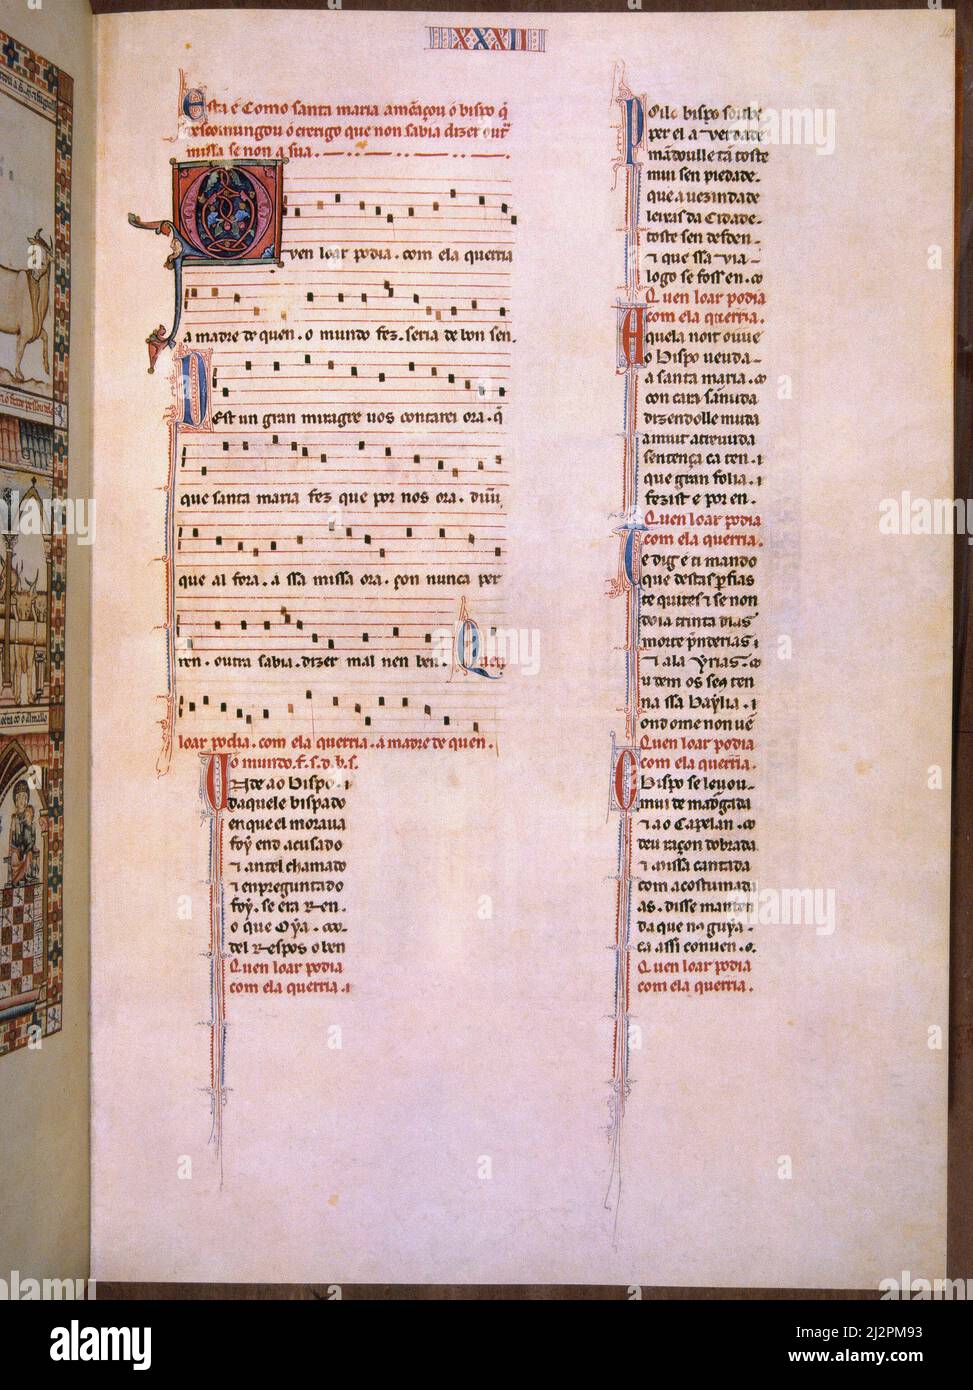 XXXII
Esta é Como santa maria ameaçou o bispo q̃
descomungou o crerigo que non sabia dizer outr̃
missa se non a sua.
Quen loar podia. com ela querria
a madre de quen. o mundo fez. seria de bon sen.
Dest un gran miragre uos contarei ora. q̃
que santa maria fez que por nos ora. dũu
que al fora. a ssa missa ora. çon nunca per
ren. outra sabia. dizer mal nen ben. Quen
loar podia. com ela querria. a madre de quen.
o mundo. f. s. d. b. s.
ao bispo. i
daquele bispado
en que el moraua
foy end acusado
⁊ ant el chamado
⁊ en preguntado
foy. se era
o que oya.
del respos o ben
Quen loar podia
com ela querria. i
Poilo bispo soube
per el a verdade
mãdoulle tã toste
mui sen piedade.
que a uezindade
leixas da cidade.
toste sen deten
⁊ que ssa uia
logo se foss en.
Quen loar podia
com ela querria.
Aquela noit ouue
o bispo ueuda
a santa maria.
con cara sañuda
dizendolle muda
a muit atreuuda
sentença ca ten. i
que gran folia. i
fezist e por en.
Quen loar podia
com ela querria.
Te dig e ti mando
que destas perfias
te quites ⁊ se non
doia trinta dias
morte prenderias i
⁊ ala yrias.
u dem os seus ten
na ssa baylia. i
ond ome non uẽ
Quen loar podia
com ela querria.
O bispo se leuou
mui de madgada
⁊ ao capelan.
deu raçon dobrada
⁊ missa cantada
com acostumada
as. disse manten
da que nos guya.
ca assi conuen.
Quen loar podia
com ela querria.
alamy
Image ID: 2J2PM93
www.alamy.com